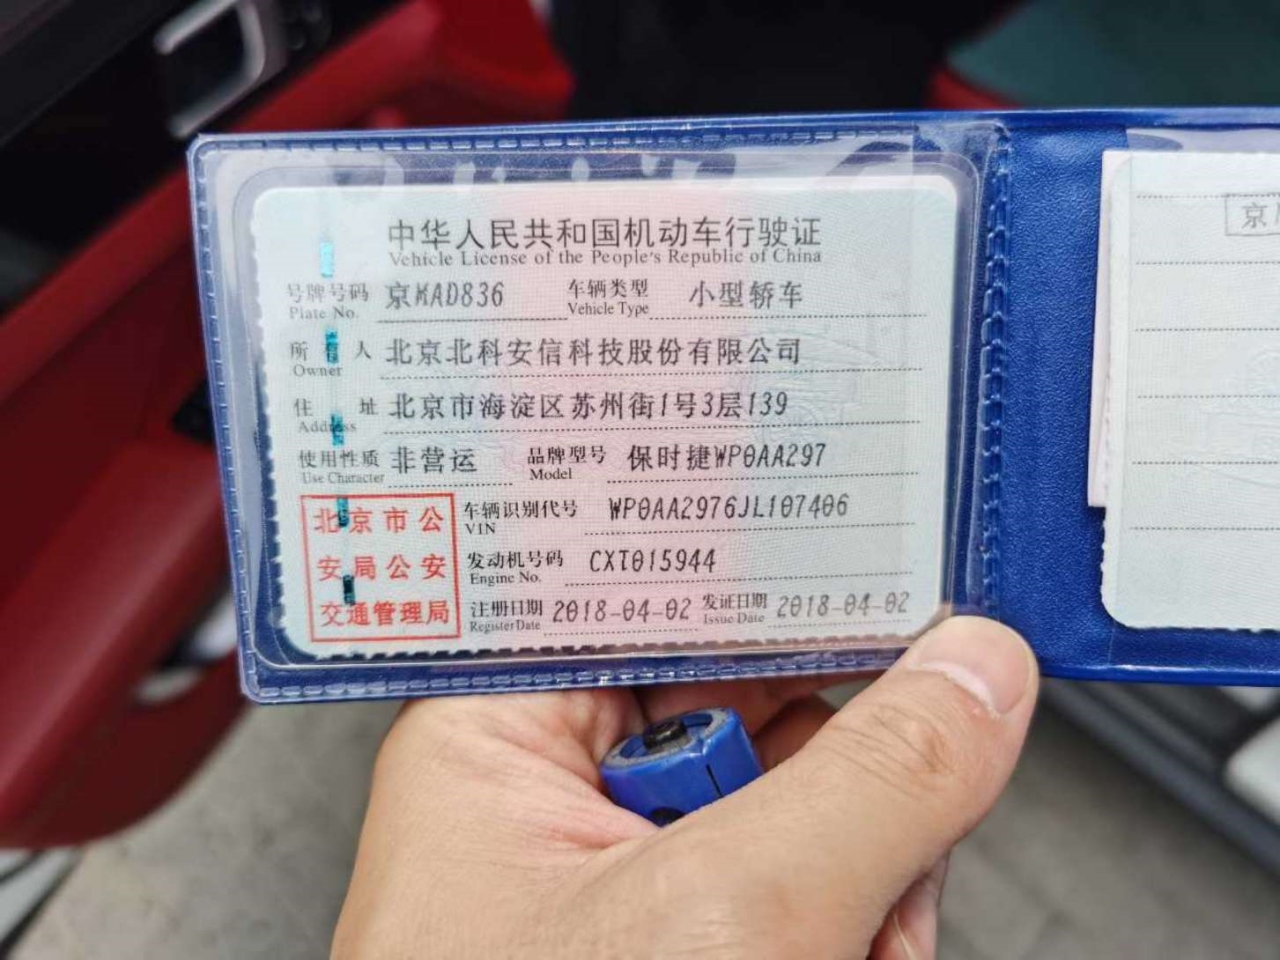 中华人民共和国机动车行驶证
Vehicle License of the People's Republic of China
号牌号码 京MAD836 车辆类型 小型轿车
Plate No. Vehicle Type
所有人 北京北科安信科技股份有限公司
Owner
住址 北京市海淀区苏州街1号3层139
Address
使用性质 非营运 品牌型号 保时捷WP0AA297
Use Character Model
北京市公
安局公安
交通管理局
车辆识别代号 WP0AA2976JL107406
VIN
发动机号码 CXT015944
Engine No.
注册日期 2018-04-02 发证日期 2018-04-02
Register Date Issue Date
京